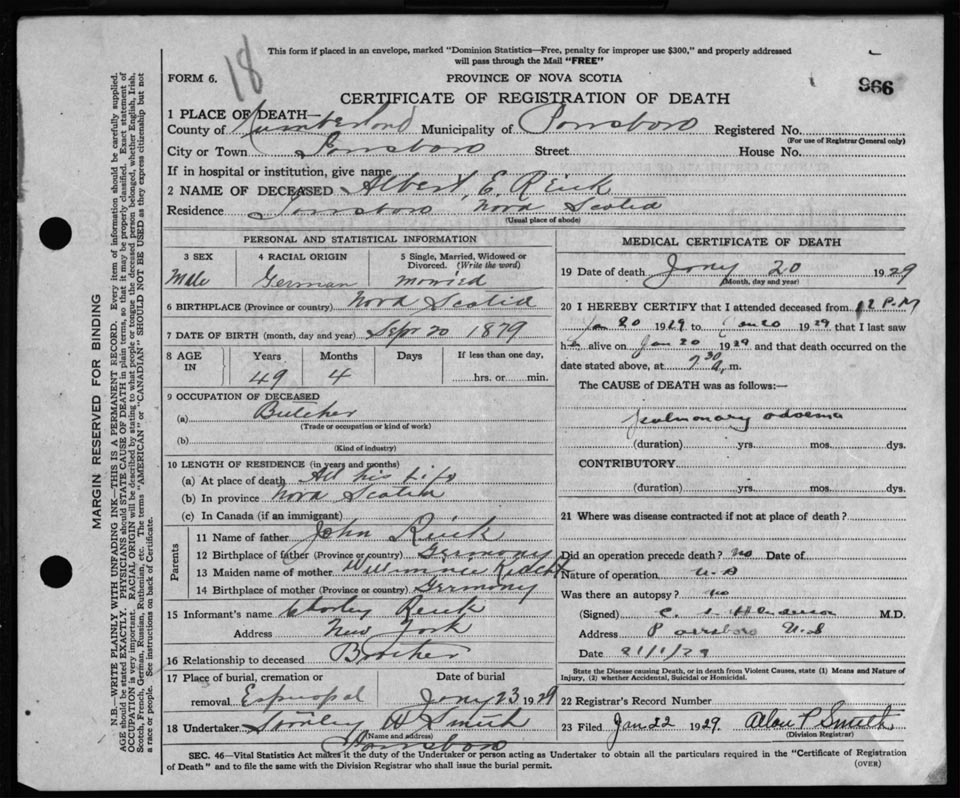 18
This form if placed in an envelope, marked "Dominion Statistics—Free, penalty for improper use $300," and properly addressed
will pass through the Mail "FREE"
FORM 6.
PROVINCE OF NOVA SCOTIA
966
CERTIFICATE OF REGISTRATION OF DEATH
1 PLACE OF DEATH—
County of Cumberland Municipality of Parrsboro Registered No.
(For use of Registrar General only)
City or Town Parrsboro Street House No.
If in hospital or institution, give name
2 NAME OF DECEASED Albert E. Reick
Residence Parrsboro Nova Scotia
(Usual place of abode)
PERSONAL AND STATISTICAL INFORMATION
3 SEX 4 RACIAL ORIGIN 5 Single, Married, Widowed or
Divorced. (Write the word)
Male German married
6 BIRTHPLACE (Province or country) Nova Scotia
7 DATE OF BIRTH (month, day and year) Sept 20 1879
8 AGE IN Years Months Days If less than one day,
49 4 hrs. or min.
9 OCCUPATION OF DECEASED
(a) Butcher
(Trade or occupation or kind of work)
(b)
(Kind of industry)
10 LENGTH OF RESIDENCE (in years and months)
(a) At place of death All his life
(b) In province Nova Scotia
(c) In Canada (if an immigrant)
Parents
11 Name of father John Reick
12 Birthplace of father (Province or country) Germany
13 Maiden name of mother
14 Birthplace of mother (Province or country) Germany
15 Informant's name Charley Reick
Address New York
16 Relationship to deceased Brother
17 Place of burial, cremation or Date of burial
removal Episcopal Jany 23 1929
18 Undertaker Stanley W Smith
(Name and address)
Parrsboro
MEDICAL CERTIFICATE OF DEATH
19 Date of death Jany 20 1929
(Month, day and year)
20 I HEREBY CERTIFY that I attended deceased from 12 P.M
Jan 20 1929 to Jan 20 1929 that I last saw
him alive on Jan 20 1929 and that death occurred on the
date stated above, at 7 30 a. m.
The CAUSE OF DEATH was as follows:—
pulmonary odoema
(duration) yrs. mos. dys.
CONTRIBUTORY
(duration) yrs. mos. dys.
21 Where was disease contracted if not at place of death?
Did an operation precede death? No Date of
Nature of operation
Was there an autopsy? no
(Signed) Henderson M.D.
Address Parrsboro N.S
Date 21/1/29
State the Disease causing Death, or in death from Violent Causes, state (1) Means and Nature of
Injury, (2) whether Accidental, Suicidal or Homicidal.
22 Registrar's Record Number
23 Filed Jan 22 1929 Alan P Smith
(Division Registrar)
SEC. 46—Vital Statistics Act makes it the duty of the Undertaker or person acting as Undertaker to obtain all the particulars required in the "Certificate of Registration
of Death" and to file the same with the Division Registrar who shall issue the burial permit.
(OVER)
MARGIN RESERVED FOR BINDING
N.B.—WRITE PLAINLY WITH UNFADING INK—THIS IS A PERMANENT RECORD. Every item of information should be carefully supplied.
AGE should be stated EXACTLY. PHYSICIANS should STATE CAUSE OF DEATH in plain terms, so that it may be properly classified. Exact statement of
OCCUPATION is very important. RACIAL ORIGIN will be described by stating to what people or tongue the deceased person belonged, whether English, Irish,
Scotch, French, German, Russian, Ruthenian, etc. The terms "AMERICAN" or "CANADIAN" SHOULD NOT BE USED as they express citizenship but not
a race or people. See instructions on back of Certificate.